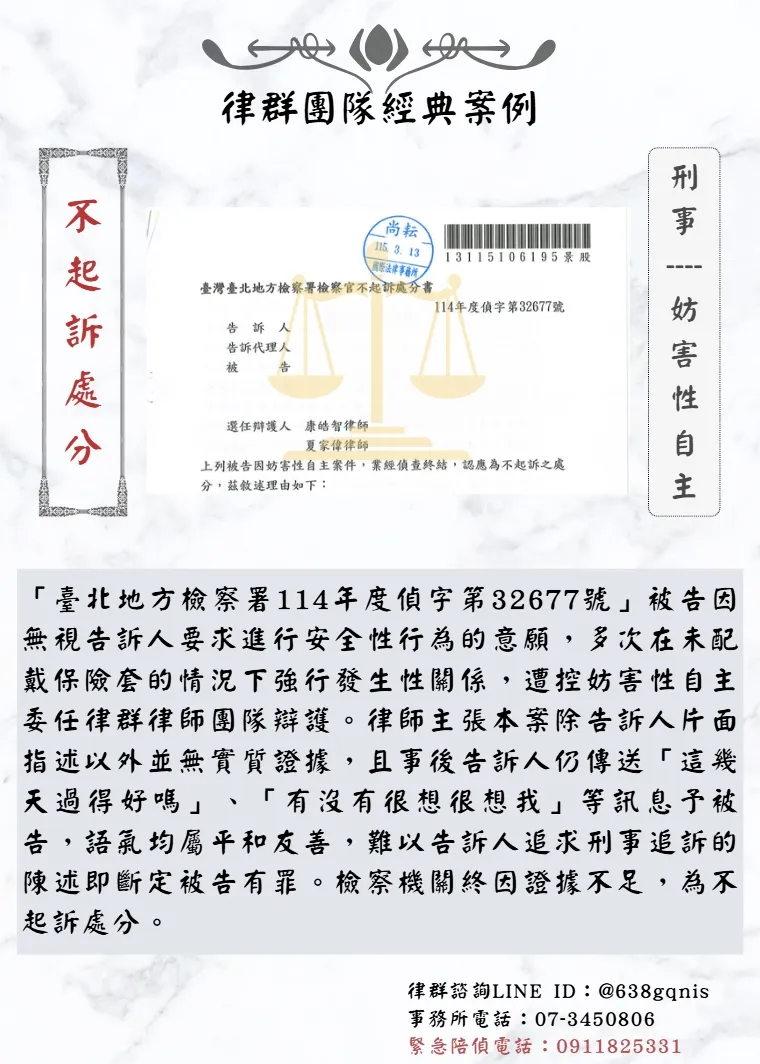 律群團隊經典案例
不起訴處分
刑事----妨害性自主
尚耘
115. 3. 13
國際法律事務所
13115106195景股
臺灣臺北地方檢察署檢察官不起訴處分書
114年度偵字第32677號
告訴人
告訴代理人
被告
選任辯護人 康皓智律師
夏家偉律師
上列被告因妨害性自主案件，業經偵查終結，認應為不起訴之處
分，茲敘述理由如下：
「臺北地方檢察署114年度偵字第32677號」被告因
無視告訴人要求進行安全性行為的意願，多次在未配
戴保險套的情況下強行發生性關係，遭控妨害性自主
委任律群律師團隊辯護。律師主張本案除告訴人片面
指述以外並無實質證據，且事後告訴人仍傳送「這幾
天過得好嗎」、「有沒有很想很想我」等訊息予被
告，語氣均屬平和友善，難以告訴人追求刑事追訴的
陳述即斷定被告有罪。檢察機關終因證據不足，為不
起訴處分。
律群諮詢LINE ID：@638gqnis
事務所電話：07-3450806
緊急陪偵電話：0911825331